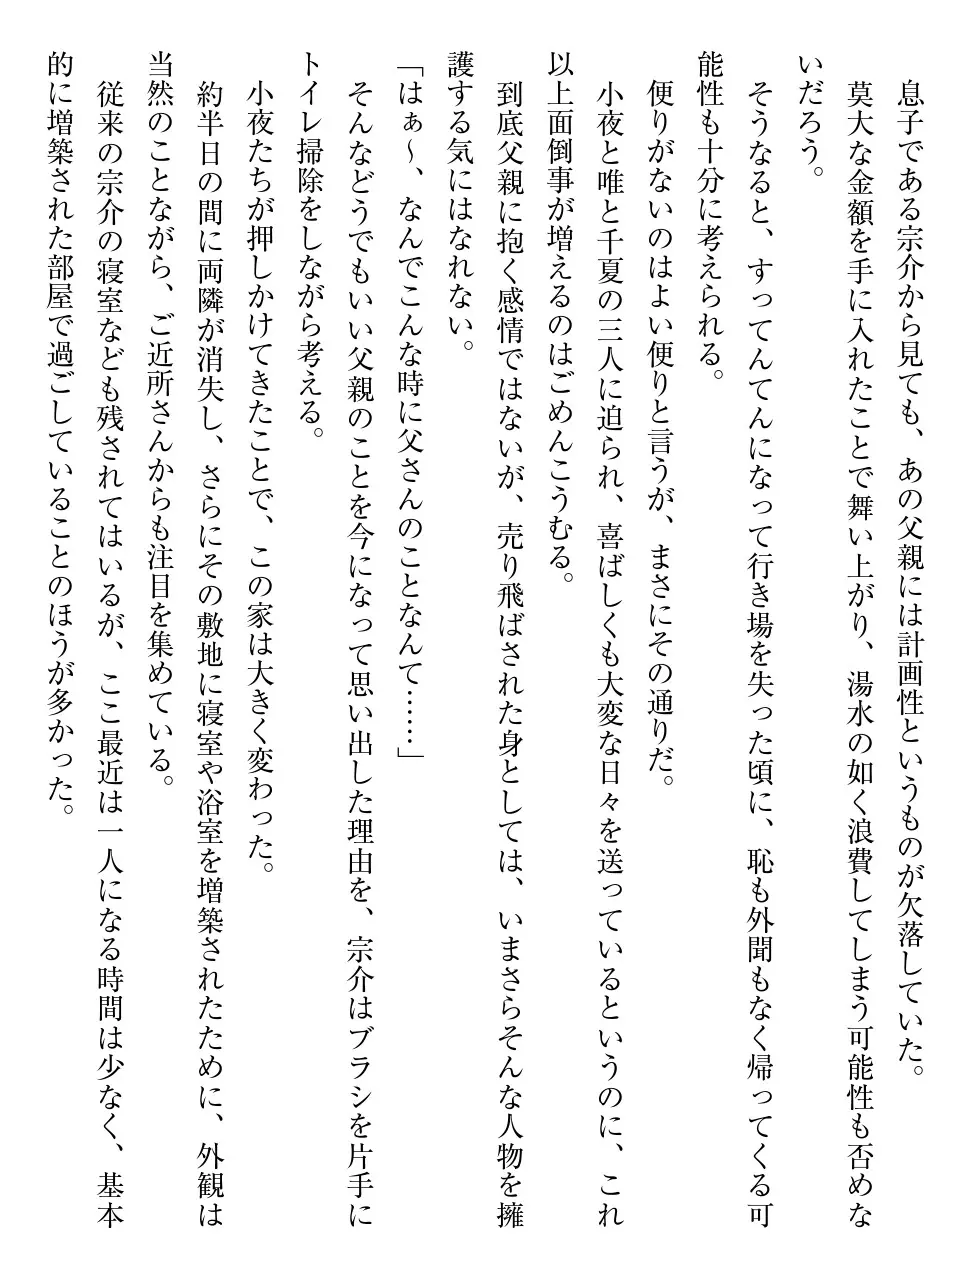 息子である宗介から見ても、あの父親には計画性というものが欠落していた。
莫大な金額を手に入れたことで舞い上がり、湯水の如く浪費してしまう可能性も否めな
いだろう。
そうなると、すってんてんになって行き場を失った頃に、恥も外聞もなく帰ってくる可
能性も十分に考えられる。
便りがないのはよい便りと言うが、まさにその通りだ。
小夜と唯と千夏の三人に迫られ、喜ばしくも大変な日々を送っているというのに、これ
以上面倒事が増えるのはごめんこうむる。
到底父親に抱く感情ではないが、売り飛ばされた身としては、いまさらそんな人物を擁
護する気にはなれない。
「はぁ～、なんでこんな時に父さんのことなんて……」
そんなどうでもいい父親のことを今になって思い出した理由を、宗介はブラシを片手に
トイレ掃除をしながら考える。
小夜たちが押しかけてきたことで、この家は大きく変わった。
約半日の間に両隣が消失し、さらにその敷地に寝室や浴室を増築されたために、外観は
当然のことながら、ご近所さんからも注目を集めている。
従来の宗介の寝室なども残されてはいるが、ここ最近は一人になる時間は少なく、基本
的に増築された部屋で過ごしていることのほうが多かった。